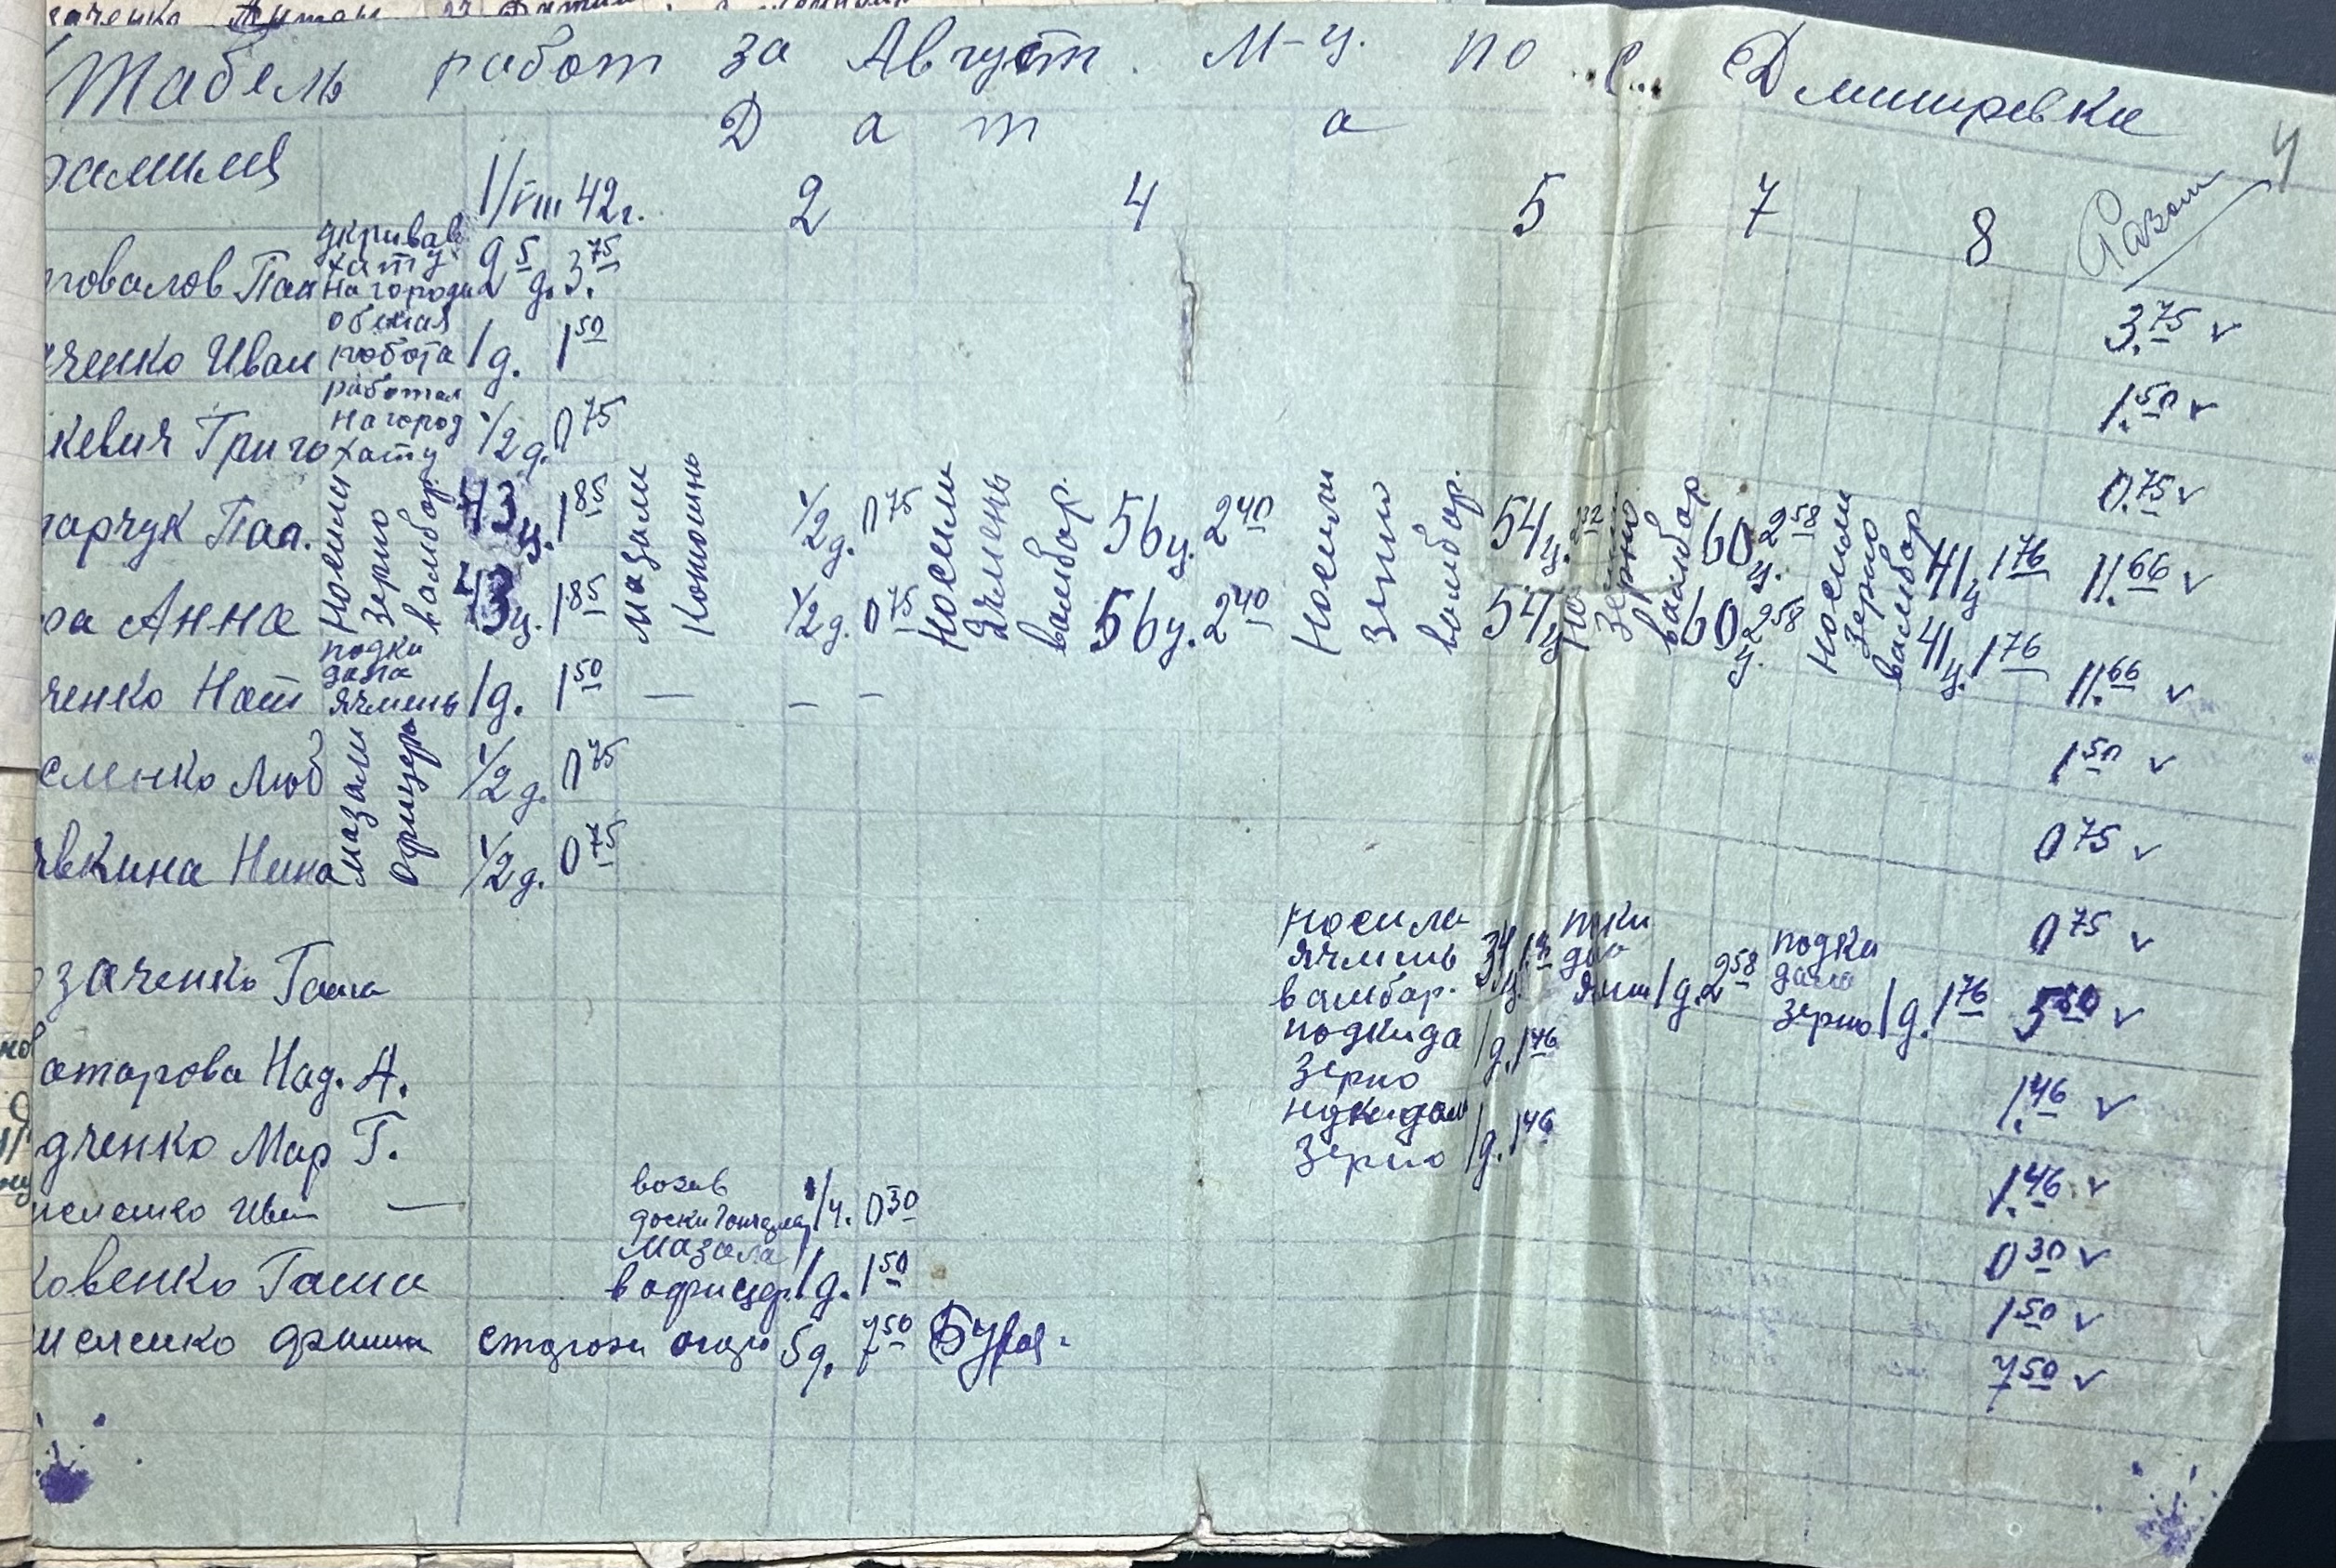 Табель работ за Август. М-ц. по с. Дмитровки
Д а т а
4
фамилия 1/VIII 42г. 2 4 5 7 8 Разом
укривав хату на городи 2 5 д. 3.75 3.75 v
овалов Пав
ченко Иван общая робота 1 д. 1 50 1.50 v
кевич Григо работал на город хату 1/2 д. 0 75 0.75 v
арчук Пав. Носили зерно в амбор 43 ц. 1 85 мазали конюшнь 1/2 д. 0 75 Носили ячмень в амбор. 56 ц. 2 40 Носили зерно в амбор. 54 ц. 2 32 зерно в амбор 60 ц. 2 58 Носили зерно в амбор 41 ц 1 76 11.66 v
ра Анна 43 ц. 1 85 1/2 д. 0 75 56 ц. 2 40 54 ц 60 ц. 2 58 41 ц. 1 76 11.66 v
ченко Нат подки дала ячмень 1 д. 1 50 — — — 1 50 v
сленко Люб мазали офицер 1/2 д. 0 75 0 75 v
вкина Нина 1/2 д. 0 75 0 75 v
заченко Гаша носила ячмень в амбар. 34 ц. 1 д. 2 58 подки дала зерно 1 д. 1 76 5 80 v
отарова Над. А. подкида зерно 1 д. 1 46 1.46 v
дченко Мар Г. зерно 1 д. 1 46 1.46 v
селенко Иван — возив доски 1 ч. 0 30 0 30 v
ковенко Гаша мазала в офицер. 1 д. 1 50 1 50 v
иселенко 5 д. 7 50 7 50 v